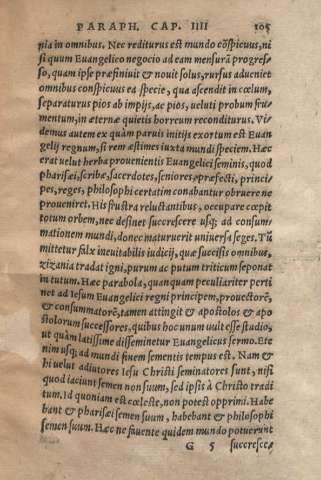 PARAPH. CAP. IIII 105
nia in omnibus. Nec rediturus est mundo cõspicuus, ni
si quum Euangelico negocio ad eam mensurã progres-
so, quam ipse præfiniuit & nouit solus, rursus adueniet
omnibus conspicuus ea specie, qua ascendit in cœlum,
separaturus pios ab impijs, ac pios, veluti probum fru-
mentum, in æternæ quietis horreum reconditurus. Vi-
demus autem ex quàm paruis initijs exortum est Euan
gelij regnum, si rem æstimes iuxta mundi speciem. Hæc
erat velut herba prouenientis Euangelici seminis, quod
pharisæi, scribæ, sacerdotes, seniores, præfecti, princi-
pes, reges, philosophi certatim conabantur obruere ne
proueniret. His frustra reluctantibus, occupare cœpit
totum orbem, nec desinet succrescere usq; ad consum-
mationem mundi, donec maturuerit uniuersa seges. Tũ
mittetur falx ineuitabilis iudicij, quæ succisis omnibus,
zizania tradat igni, purum ac putum triticum seponat
in tutum. Hæc parabola, quanquam peculiariter perti
net ad Iesum Euangelici regni principem, prouectorẽ,
& consummatorẽ, tamen attingit & apostolos & apo
stolorum successores, quibus hoc unum uult esse studio,
ut quàm latissime disseminetur Euangelicus sermo. Ete
nim usq; ad mundi finem sementis tempus est. Nam &
hi velut adiutores Iesu Christi seminatores sunt, nisi
quod iaciunt semen non suum, sed ipsis à Christo tradi
tum. Id quoniam est cœleste, non potest opprimi. Habe
bant & pharisæi semen suum, habebant & philosophi
semen suum. Hæc ne fauente quidem mundo potuerunt
G 5 succresce-